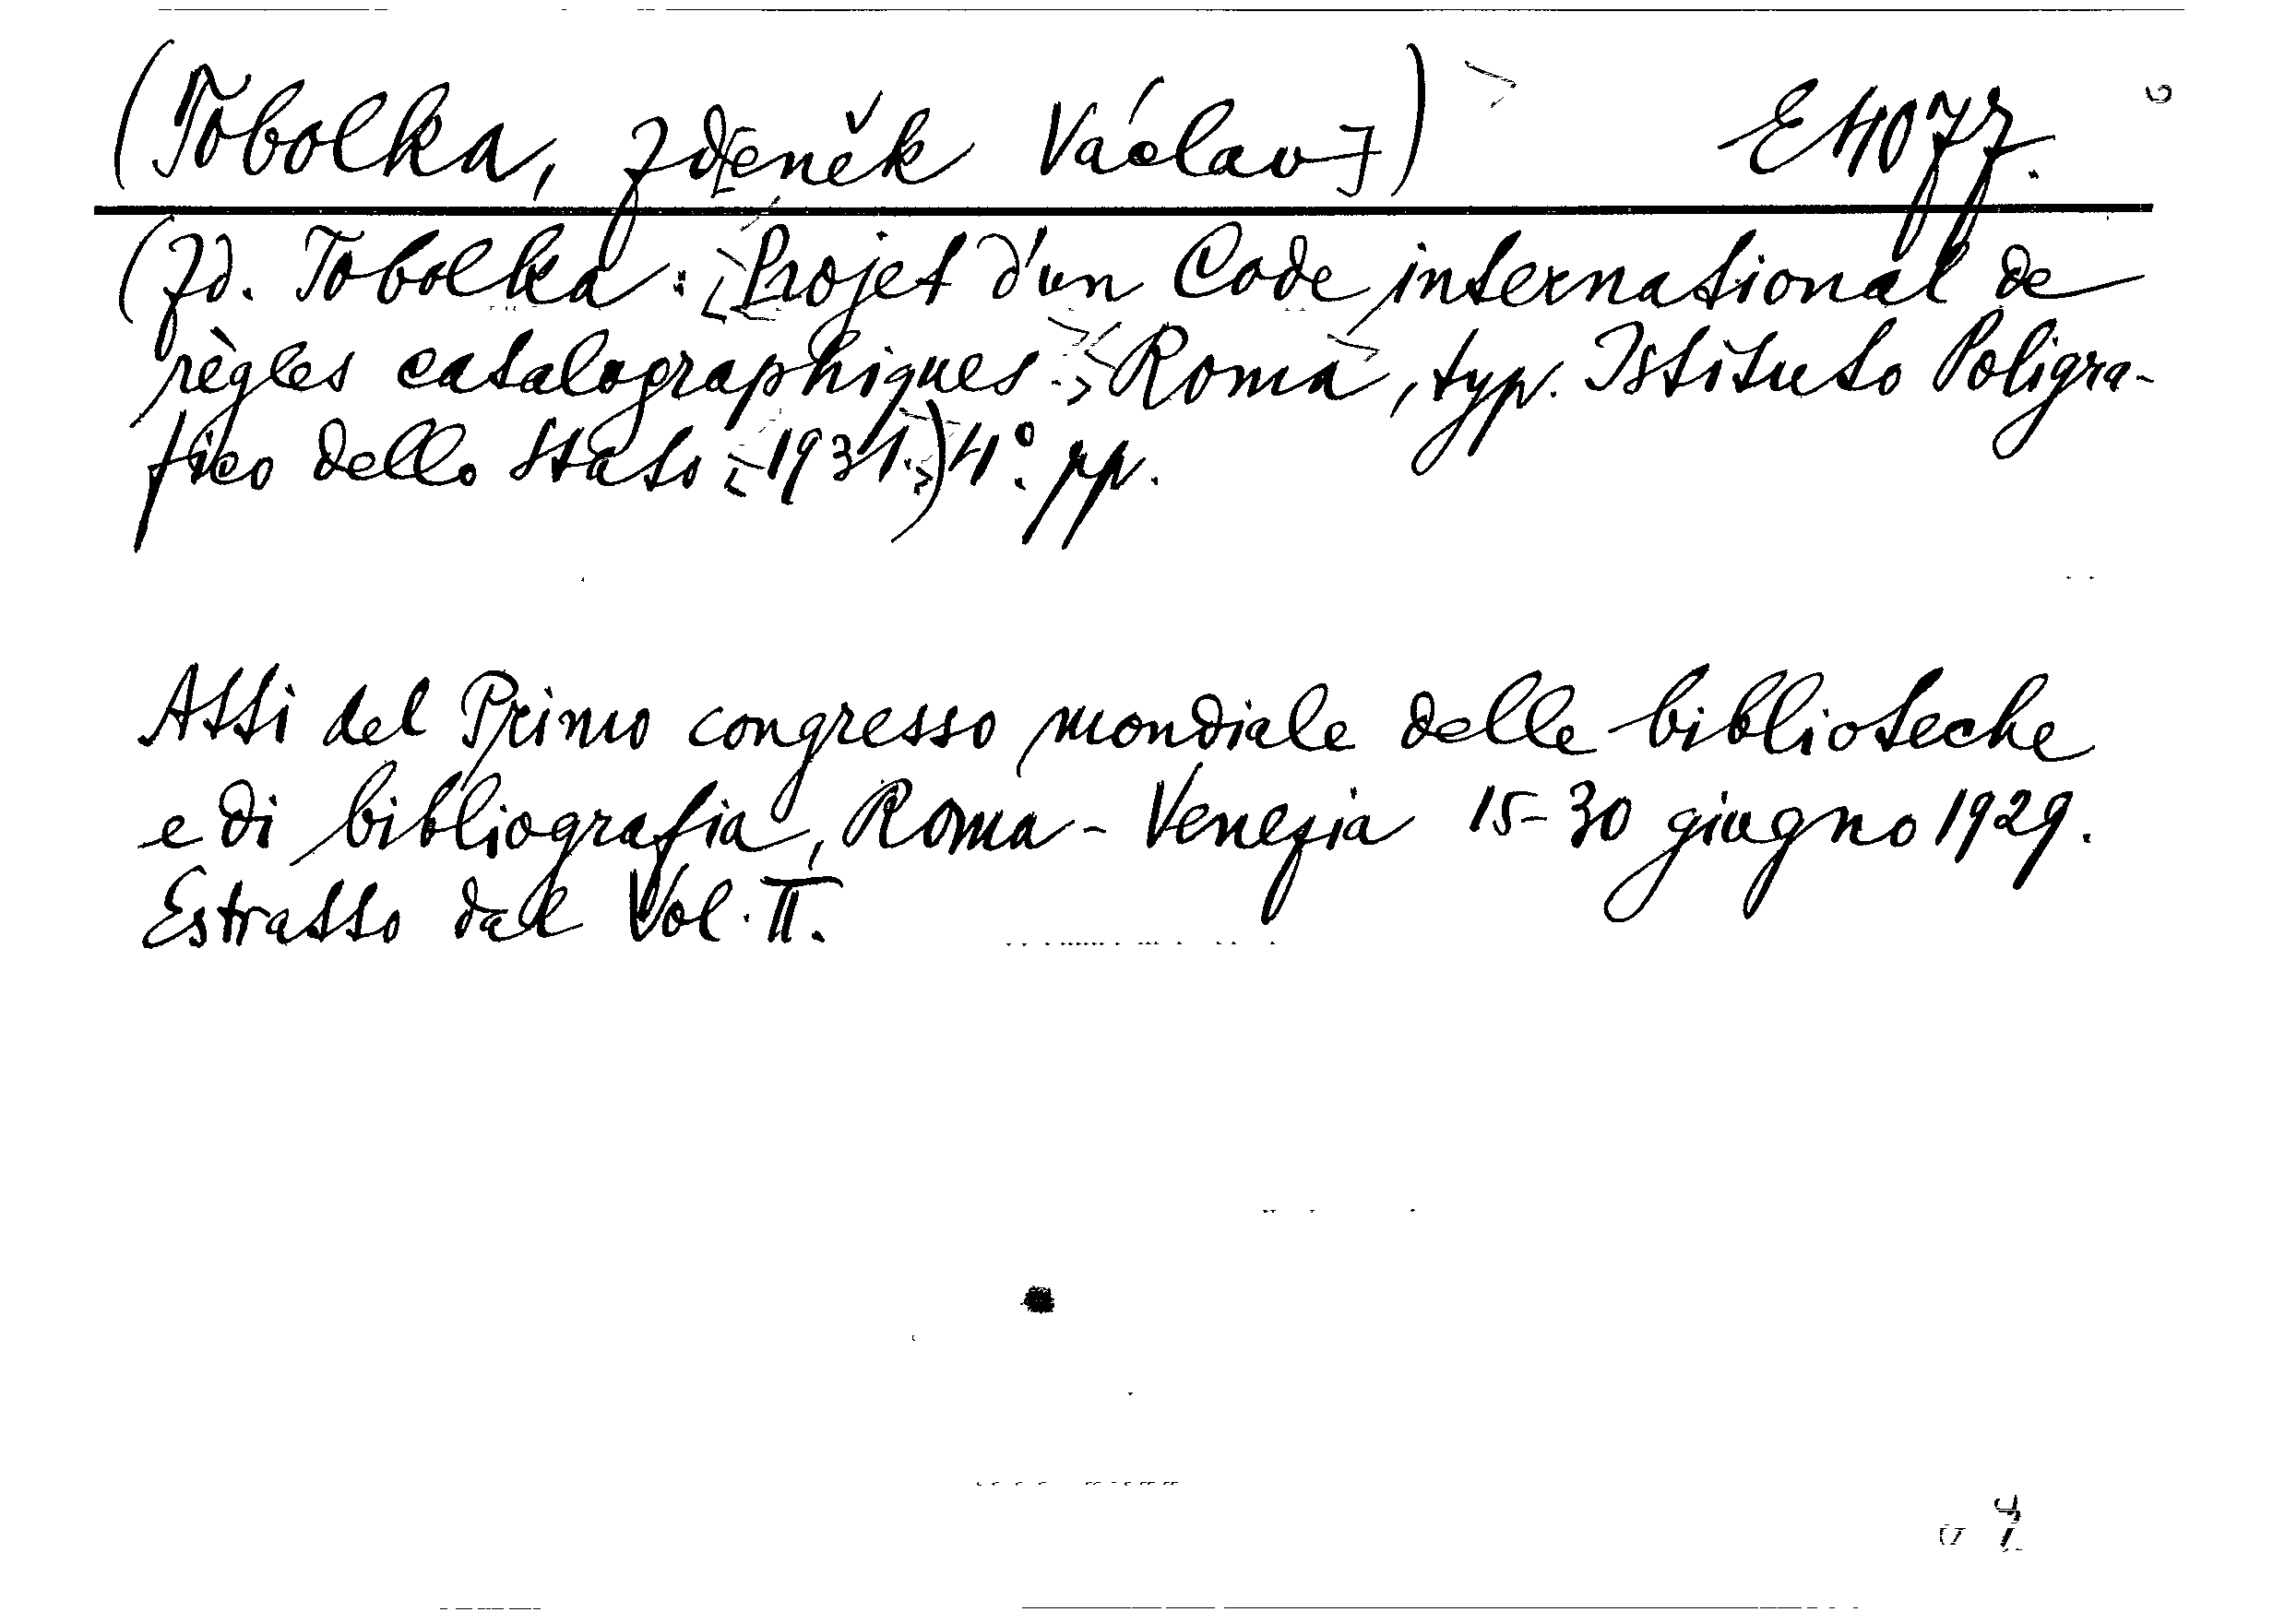 (Tobolka, Zd[eněk Václav]) E4077.
(Zd. Tobolka: Projet d'un Code international de
règles catalographiques. Roma, typ. Istituto Poligra-
fico dello Stato 1931.) 4°. pp.
Atti del Primo congresso mondiale delle biblioteche
e di bibliografia, Roma - Venezia 15-30 giugno 1929.
Estratto dal Vol. II.